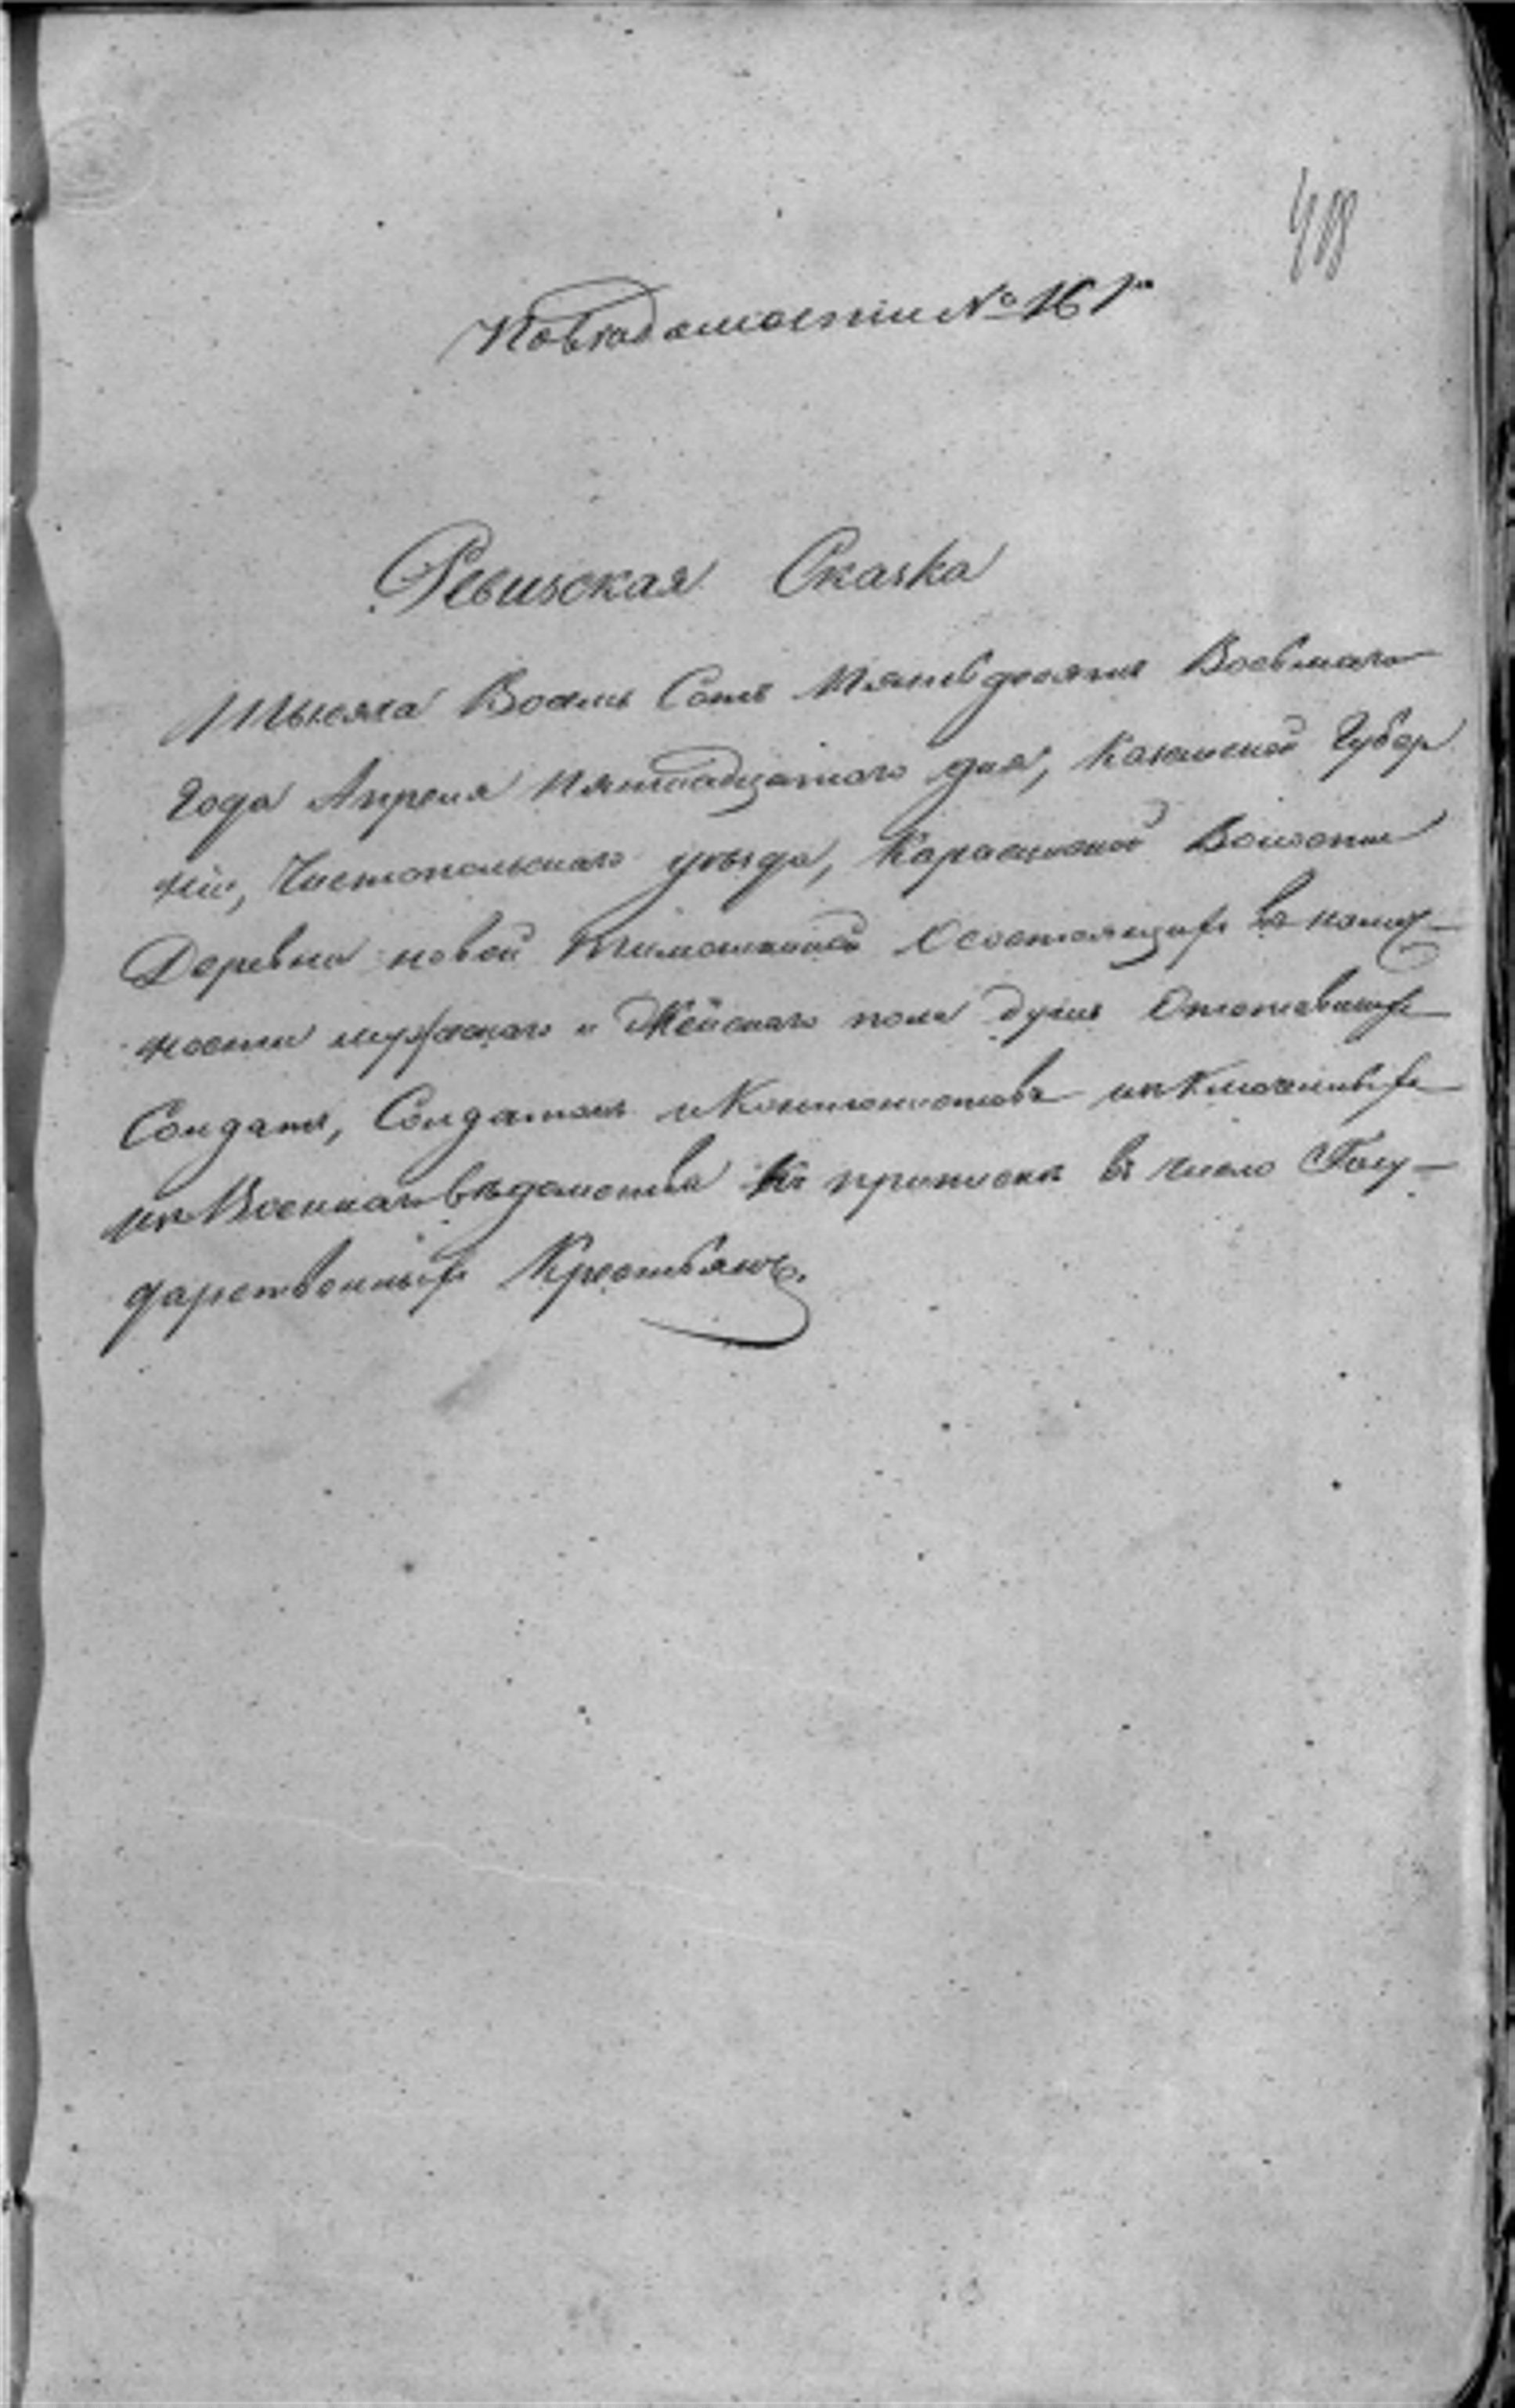 По ведомости № 161й
Ревизская Сказка
Тысяча Восемь Сотъ Пятьдесятъ Восьмаго
Года Апреля Пятнадцатаго дня, Казанской Губер
ніи, Чистопольскаго уѣзда, Волости
Деревни новой о состоящихъ въ налич-
ности мужескаго и Женскаго пола душъ Отставныхъ
Солдатъ, Солдатокъ и Кантонистовъ изключенныхъ
изъ Военнаго вѣдомства къ приписке въ число Госу-
дарственныхъ Крестьянъ.